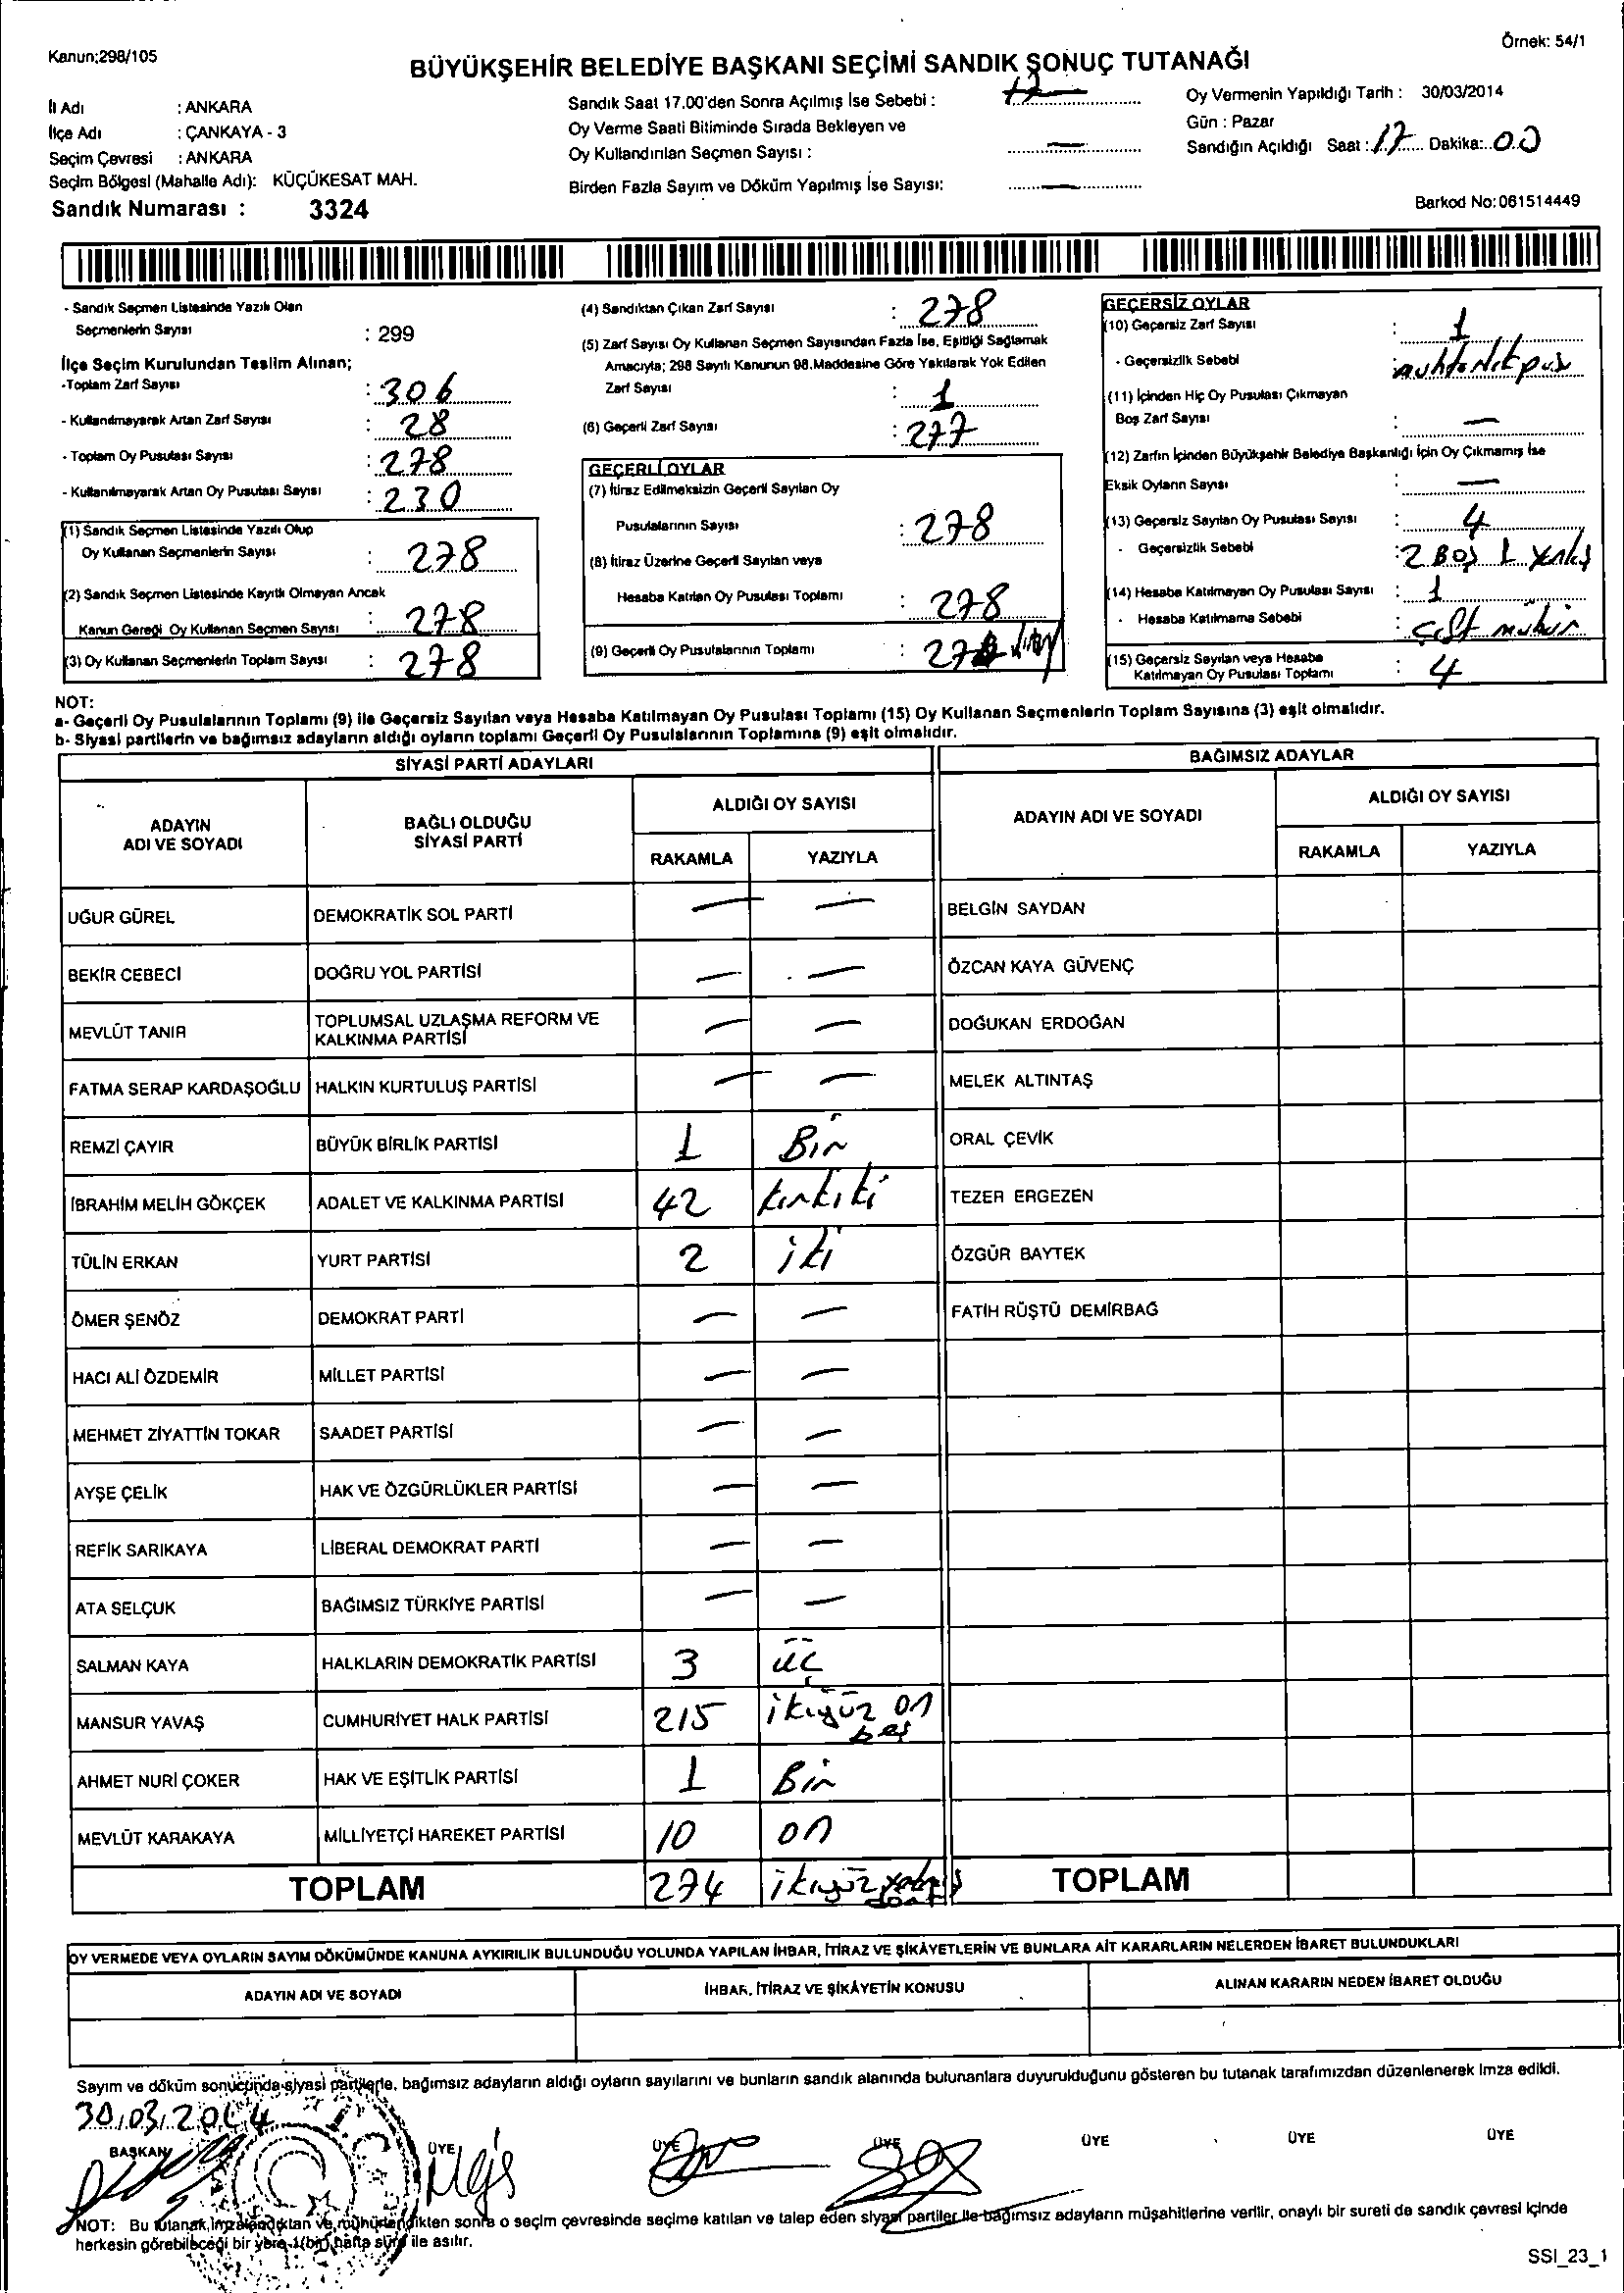 Kanun;298/105
Örnek: 54/1
BÜYÜKŞEHİR BELEDİYE BAŞKANI SEÇİMİ SANDIK SONUÇ TUTANAĞI
İl Adı : ANKARA
İlçe Adı : ÇANKAYA - 3
Seçim Çevresi : ANKARA
Seçim Bölgesi (Mahalle Adı): KÜÇÜKESAT MAH.
Sandık Numarası : 3324
Sandık Saat 17.00'den Sonra Açılmış İse Sebebi : 17
Oy Verme Saati Bitiminde Sırada Bekleyen ve
Oy Kullandırılan Seçmen Sayısı : —
Birden Fazla Sayım ve Döküm Yapılmış İse Sayısı: —
Oy Vermenin Yapıldığı Tarih : 30/03/2014
Gün : Pazar
Sandığın Açıldığı Saat : 17 Dakika: 00
Barkod No:061514449
- Sandık Seçmen Listesinde Yazılı Olan
Seçmenlerin Sayısı : 299
İlçe Seçim Kurulundan Teslim Alınan;
-Toplam Zarf Sayısı : 306
- Kullanılmayarak Artan Zarf Sayısı : 28
- Toplam Oy Pusulası Sayısı : 278
- Kullanılmayarak Artan Oy Pusulası Sayısı : 230
(1) Sandık Seçmen Listesinde Yazılı Olup
Oy Kullanan Seçmenlerin Sayısı : 278
(2) Sandık Seçmen Listesinde Kayıtlı Olmayan Ancak
Kanun Gereği Oy Kullanan Seçmen Sayısı : 278
(3) Oy Kullanan Seçmenlerin Toplam Sayısı : 278
(4) Sandıktan Çıkan Zarf Sayısı : 278
(5) Zarf Sayısı Oy Kullanan Seçmen Sayısından Fazla İse, Eşitliği Sağlamak
Amacıyla; 298 Sayılı Kanunun 98.Maddesine Göre Yakılarak Yok Edilen
Zarf Sayısı : 1
(6) Geçerli Zarf Sayısı : 277
GEÇERLİ OYLAR
(7) İtiraz Edilmeksizin Geçerli Sayılan Oy
Pusulalarının Sayısı : 278
(8) İtiraz Üzerine Geçerli Sayılan veya
Hesaba Katılan Oy Pusulası Toplamı : 278
(9) Geçerli Oy Pusulalarının Toplamı :
GEÇERSİZ OYLAR
(10) Geçersiz Zarf Sayısı : 1
- Geçersizlik Sebebi :
(11) İçinden Hiç Oy Pusulası Çıkmayan
Boş Zarf Sayısı : —
(12) Zarfın İçinden Büyükşehir Belediye Başkanlığı İçin Oy Çıkmamış İse
Eksik Oyların Sayısı : —
(13) Geçersiz Sayılan Oy Pusulası Sayısı : 4
- Geçersizlik Sebebi : 2 Boş 1
(14) Hesaba Katılmayan Oy Pusulası Sayısı : 1
- Hesaba Katılmama Sebebi : çift mühür
(15) Geçersiz Sayılan veya Hesaba
Katılmayan Oy Pusulası Toplamı : 4
NOT:
a- Geçerli Oy Pusulalarının Toplamı (9) ile Geçersiz Sayılan veya Hesaba Katılmayan Oy Pusulası Toplamı (15) Oy Kullanan Seçmenlerin Toplam Sayısına (3) eşit olmalıdır.
b- Siyasi partilerin ve bağımsız adayların aldığı oyların toplamı Geçerli Oy Pusulalarının Toplamına (9) eşit olmalıdır.
SİYASİ PARTİ ADAYLARI
ADAYIN ADI VE SOYADI BAĞLI OLDUĞU SİYASİ PARTİ ALDIĞI OY SAYISI
RAKAMLA YAZIYLA
UĞUR GÜREL DEMOKRATİK SOL PARTİ — —
BEKİR CEBECİ DOĞRU YOL PARTİSİ — —
MEVLÜT TANIR TOPLUMSAL UZLAŞMA REFORM VE KALKINMA PARTİSİ — —
FATMA SERAP KARDAŞOĞLU HALKIN KURTULUŞ PARTİSİ — —
REMZİ ÇAYIR BÜYÜK BİRLİK PARTİSİ 1 Bir
İBRAHİM MELİH GÖKÇEK ADALET VE KALKINMA PARTİSİ 42 kırkiki
TÜLİN ERKAN YURT PARTİSİ 2 iki
ÖMER ŞENÖZ DEMOKRAT PARTİ — —
HACI ALİ ÖZDEMİR MİLLET PARTİSİ — —
MEHMET ZİYATTİN TOKAR SAADET PARTİSİ — —
AYŞE ÇELİK HAK VE ÖZGÜRLÜKLER PARTİSİ — —
REFİK SARIKAYA LİBERAL DEMOKRAT PARTİ — —
ATA SELÇUK BAĞIMSIZ TÜRKİYE PARTİSİ — —
SALMAN KAYA HALKLARIN DEMOKRATİK PARTİSİ 3 üç
MANSUR YAVAŞ CUMHURİYET HALK PARTİSİ 215 ikiyüz on beş
AHMET NURİ ÇOKER HAK VE EŞİTLİK PARTİSİ 1 Bir
MEVLÜT KARAKAYA MİLLİYETÇİ HAREKET PARTİSİ 10 on
TOPLAM 274 ikiyüzyetmiş dört
BAĞIMSIZ ADAYLAR
ADAYIN ADI VE SOYADI ALDIĞI OY SAYISI
RAKAMLA YAZIYLA
BELGİN SAYDAN
ÖZCAN KAYA GÜVENÇ
DOĞUKAN ERDOĞAN
MELEK ALTINTAŞ
ORAL ÇEVİK
TEZER ERGEZEN
ÖZGÜR BAYTEK
FATİH RÜŞTÜ DEMİRBAĞ
TOPLAM
OY VERMEDE VEYA OYLARIN SAYIM DÖKÜMÜNDE KANUNA AYKIRILIK BULUNDUĞU YOLUNDA YAPILAN İHBAR, İTİRAZ VE ŞİKÂYETLERİN VE BUNLARA AİT KARARLARIN NELERDEN İBARET BULUNDUKLARI
ADAYIN ADI VE SOYADI İHBAR, İTİRAZ VE ŞİKÂYETİN KONUSU ALINAN KARARIN NEDEN İBARET OLDUĞU
Sayım ve döküm sonucunda siyasi partilerle, bağımsız adayların aldığı oyların sayılarını ve bunların sandık alanında bulunanlara duyurulduğunu gösteren bu tutanak tarafımızdan düzenlenerek imza edildi.
30/03/2014
BAŞKAN ÜYE ÜYE ÜYE ÜYE ÜYE ÜYE
NOT: Bu tutanak,imzalandıktan ve mühürlendikten sonra o seçim çevresinde seçime katılan ve talep eden siyasi partiler ile bağımsız adayların müşahitlerine verilir, onaylı bir sureti de sandık çevresi içinde
herkesin görebileceği bir yere 1(bir) hafta süre ile asılır.
SSI_23_1